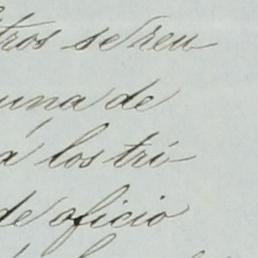 tros se reu-
una de
á los tri-
de oficio